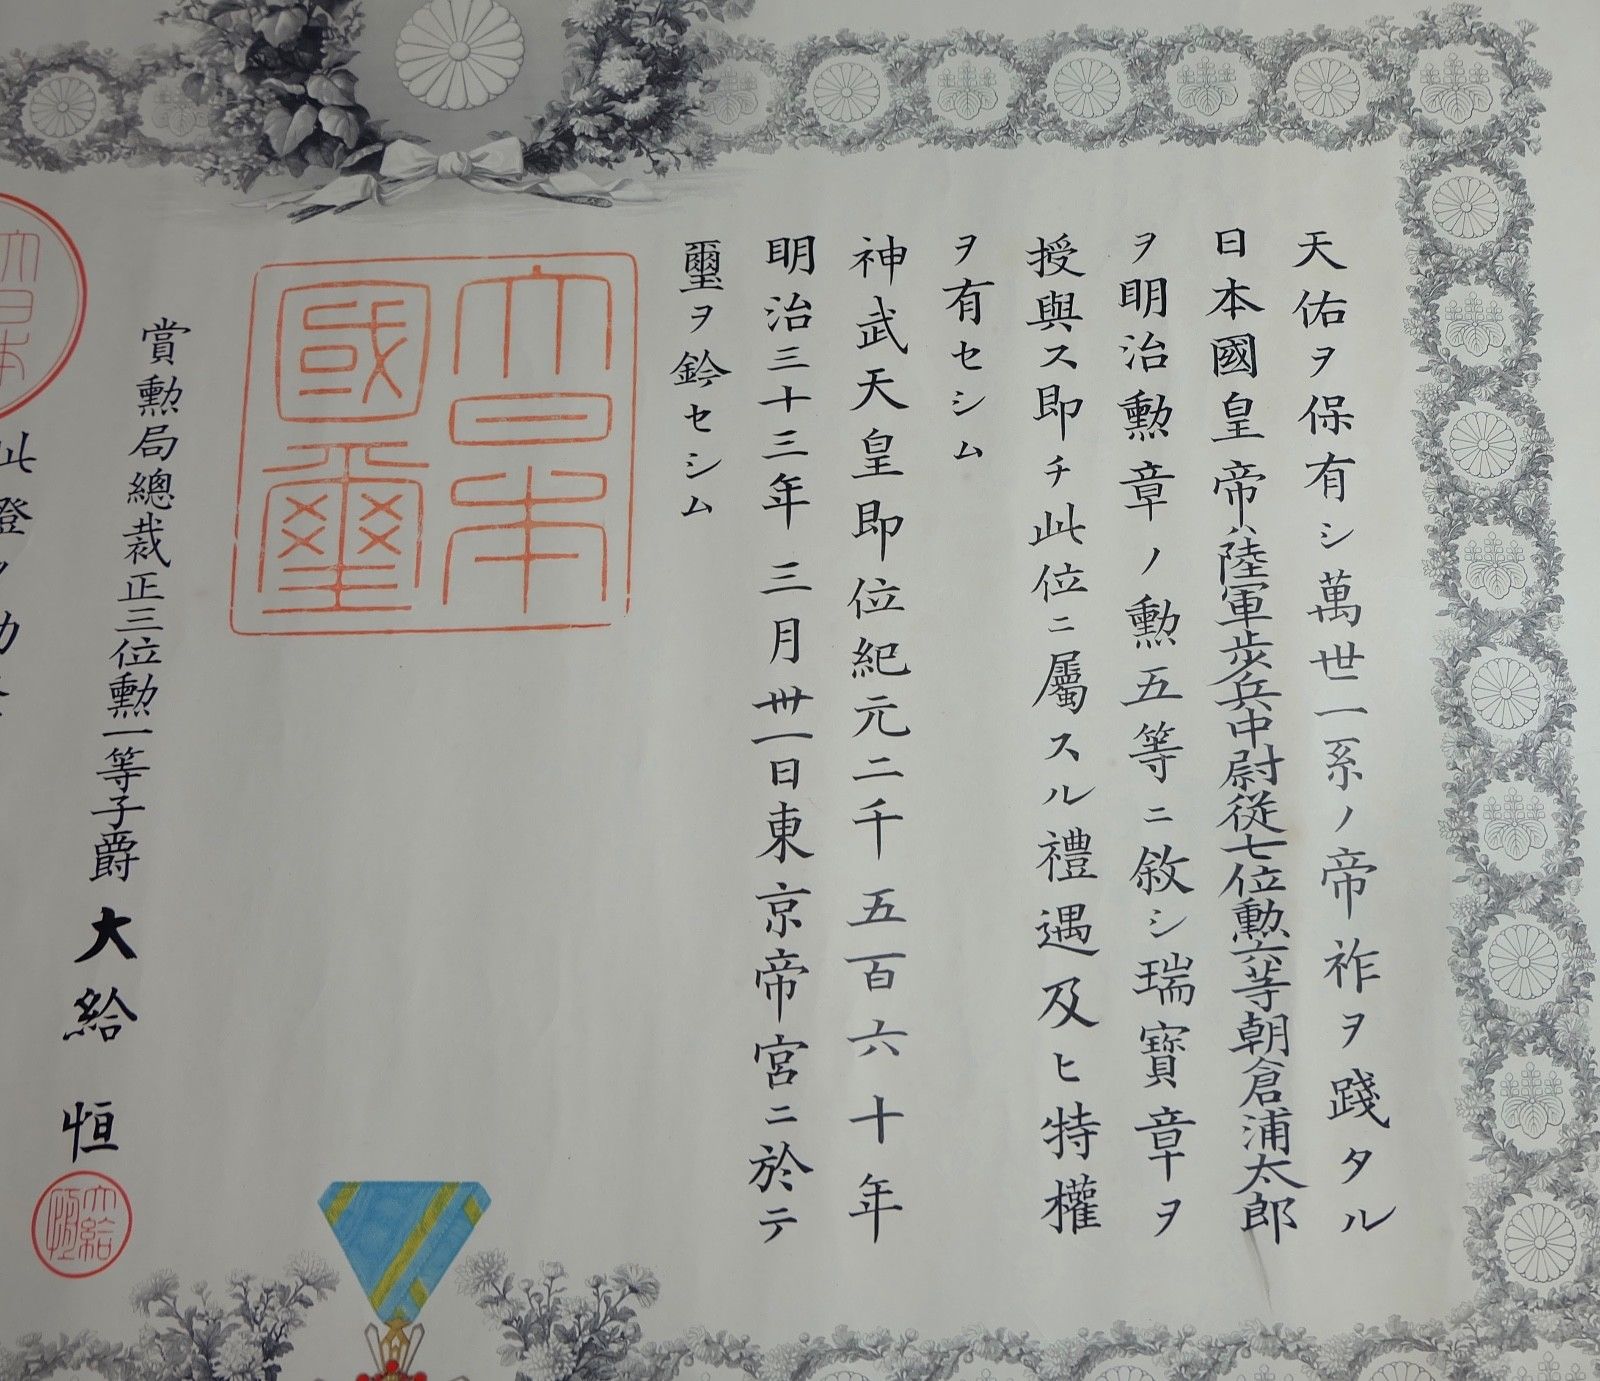 天佑ヲ保有シ萬世一系ノ帝祚ヲ踐タル
日本國皇帝ハ陸軍步兵中尉從七位勲六等朝倉浦太郎
ヲ明治勲章ノ勲五等ニ敘シ瑞寶章ヲ
授與ス即チ此位ニ屬スル禮遇及ヒ特權
ヲ有セシム
神武天皇即位紀元二千五百六十年
明治三十三年三月卅一日東京帝宮ニ於テ
璽ヲ鈐セシム
大日本
國璽
賞勲局總裁正三位勲一等子爵大給恒
大給
恒
大日本
此證ヲ勘